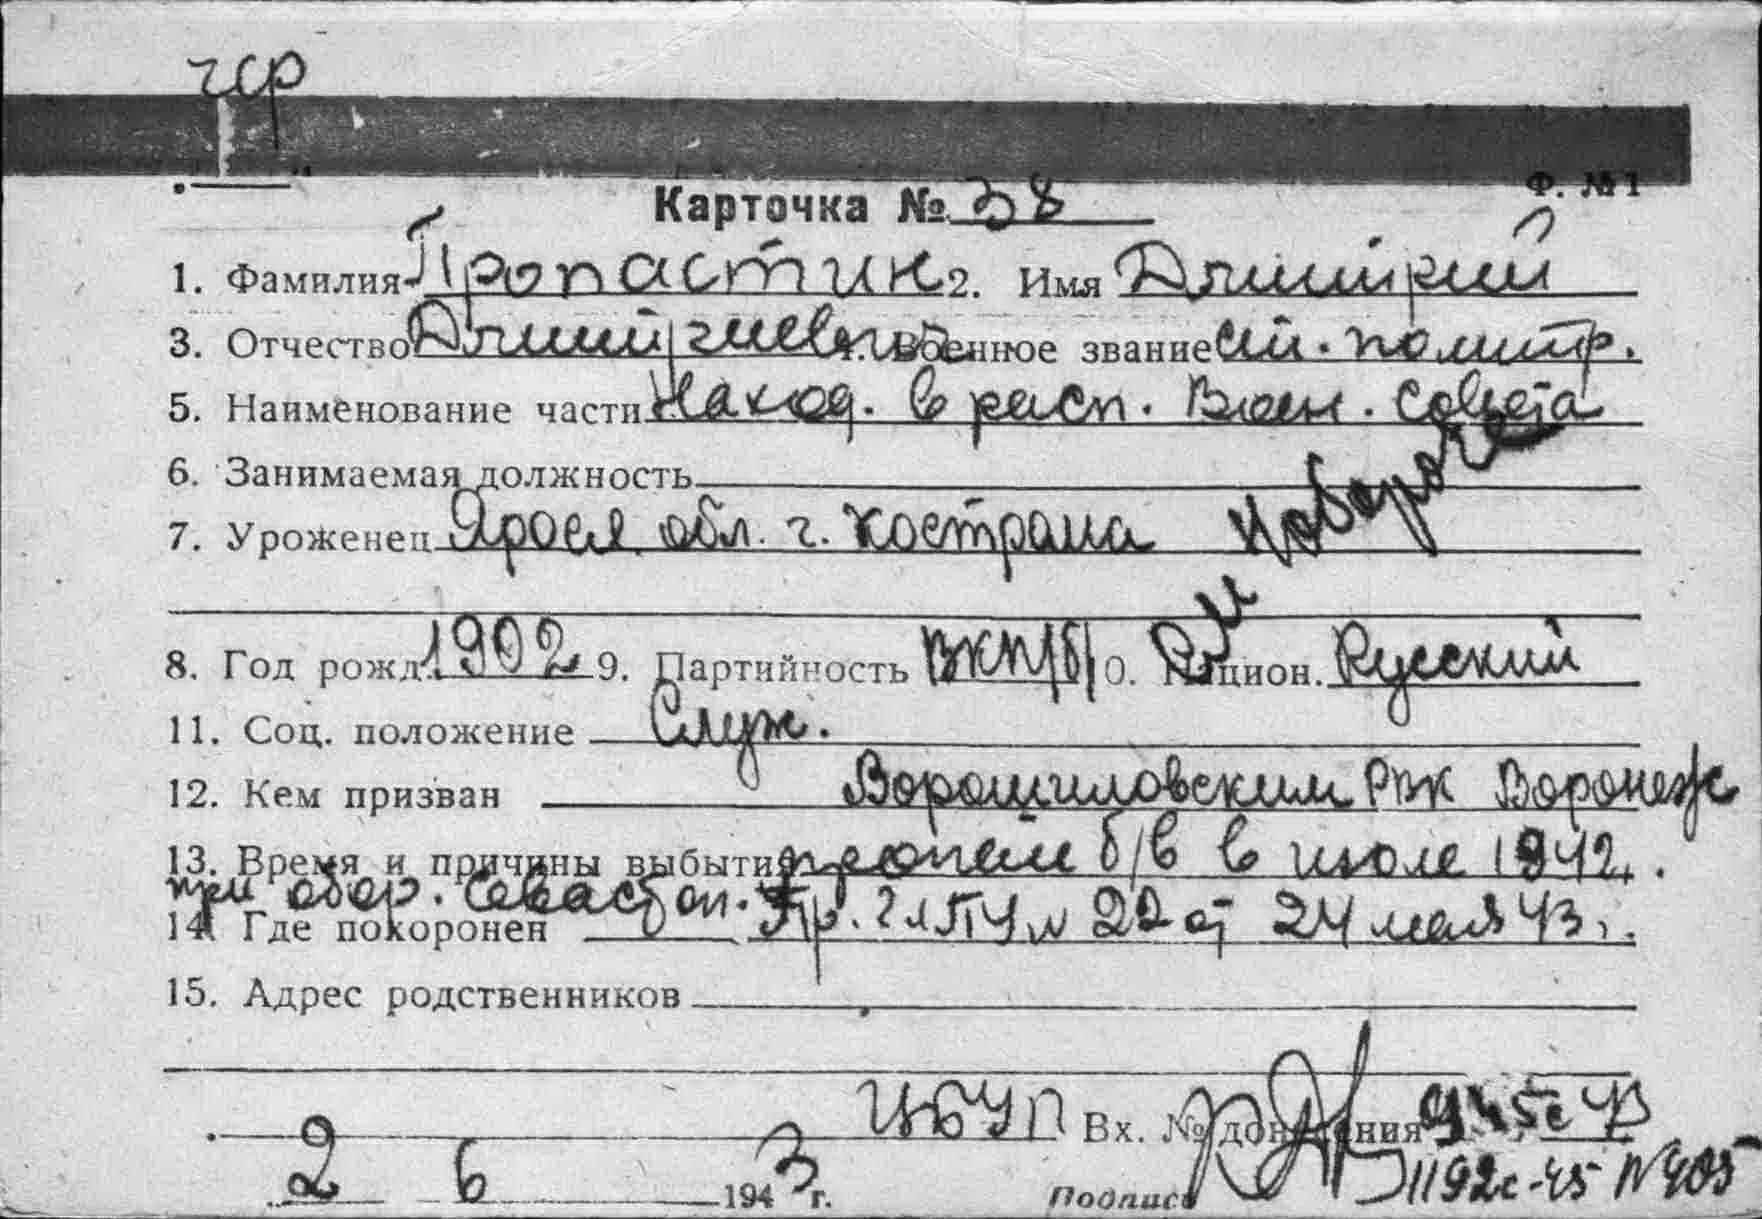 Ф. №1
Карточка № 38
1. Фамилия Пропастин 2. Имя Дмитрий
3. Отчество Дмитриевич 4. Военное звание ст. политр.
5. Наименование части Наход. в расп. Воен. Совета
6. Занимаемая должность
7. Уроженец Яросл. обл. г. Кострома
на обороте
8. Год рожд. 1902 9. Партийность ВКП/б/ 10. Национ. Русский
11. Соц. положение Служ.
12. Кем призван Ворошиловским РВК Воронеж
13. Время и причины выбытия пропал б/в в июле 1942 г.
при обор. Севастоп. Пр. ГлПУ № 22 от 24 мая 43 г.
14. Где похоронен
15. Адрес родственников
ЦБУП Вх. № донесения
2 6 1943 г. Подпись 1192с-45